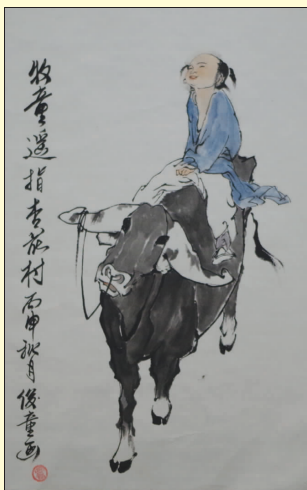 牧童遥指杏花村丙申秋月俊童画